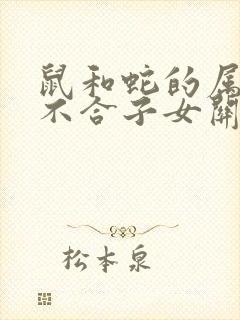 鼠和蛇的属
不合子女關
松本泉